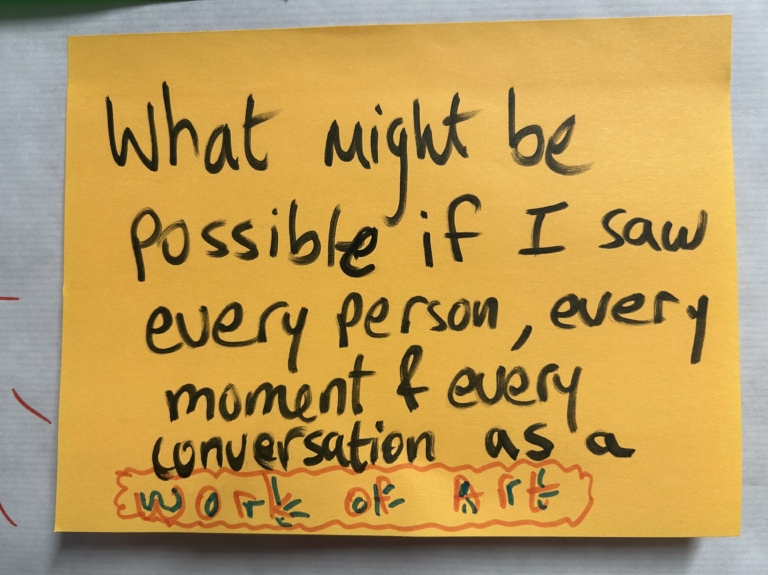 What might be
possible if I saw
every person, every
moment & every
conversation as a
work of Art